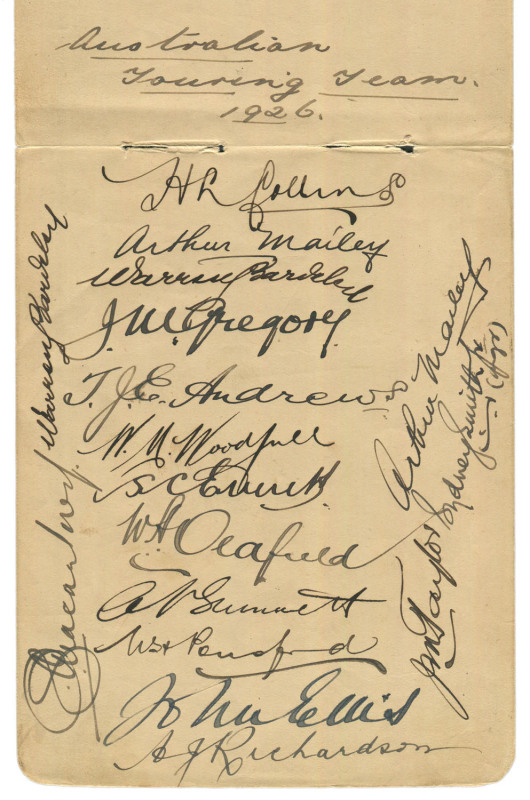 Australian
Touring Team.
1926.
H L Collins
Arthur Mailey
Warren Bardsley
J. M. Gregory.
T. J. E. Andrews
W. M. Woodfull
S C Everett
W A Oldfield
C V Grimmett
W H Ponsford
John Ellis
A J Richardson
Warren Bardsley
Arthur Mailey
Sydney Smith Jr
(Mgr)
J M Taylor